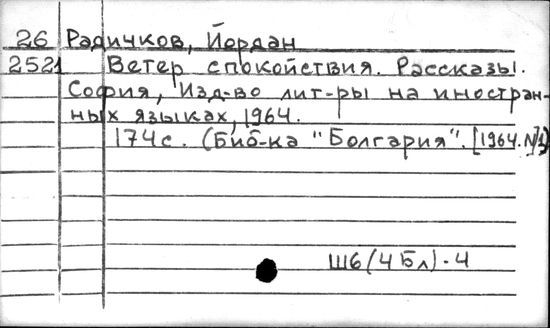 26 Радичков, Йордан
2521 Ветер спокойствия. Рассказы.
София, Изд-во лит-ры на иностран-
ных языках, 1964.
174 с. (Биб-ка "Болгария". [1964. №1])
Ш6(4Бл)-4